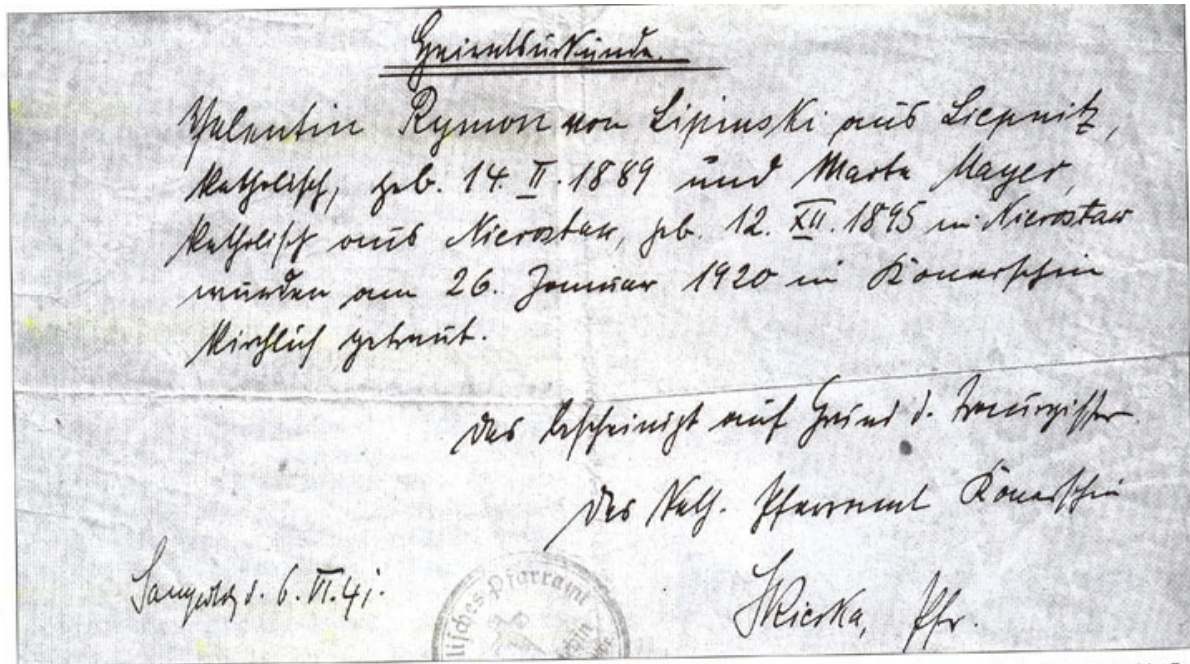 Heiratsurkunde.
Valentin Rymon von Lipinski aus Liepnitz,
katholisch, geb. 14. II. 1889 und Marta Mayer,
katholisch aus Nierostaw, geb. 12. XII. 1895 in Nierostaw
wurden am 26. Januar 1920 in Konarschin
kirchlich getraut.
Das bescheinigt auf Grund d. Trauregister
das Kath. Pfarramt Konarschin
d. 6. VI. 41.
Skierka, Pfr.
lisches Pfarramt